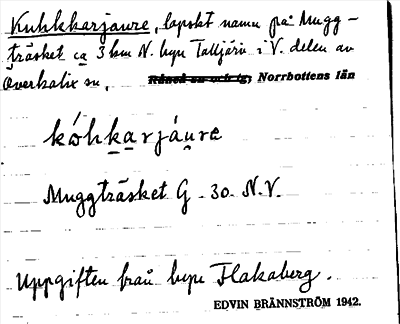 Kuhkkarjaure, lapskt namn på Mugg-
träsket ca 3 km N. byn Talljärv i V. delen av
Överkalix sn, Råneå sn och tg, Norrbottens län
kóhkarjáure
Muggträsket G - 30 - N.V.
Uppgiften från byn Flakaberg.
EDVIN BRÄNNSTRÖM 1942.